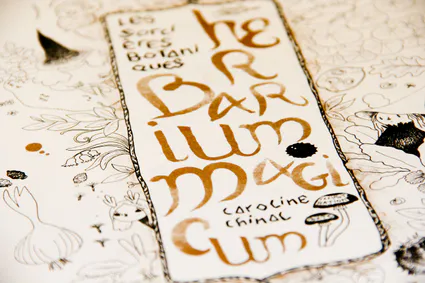 LES
SORCI
ÈRES
BOTANI
QUES
HE
R
BAR
IUM
MAGI
CUM
CAROLINE
CHINAL